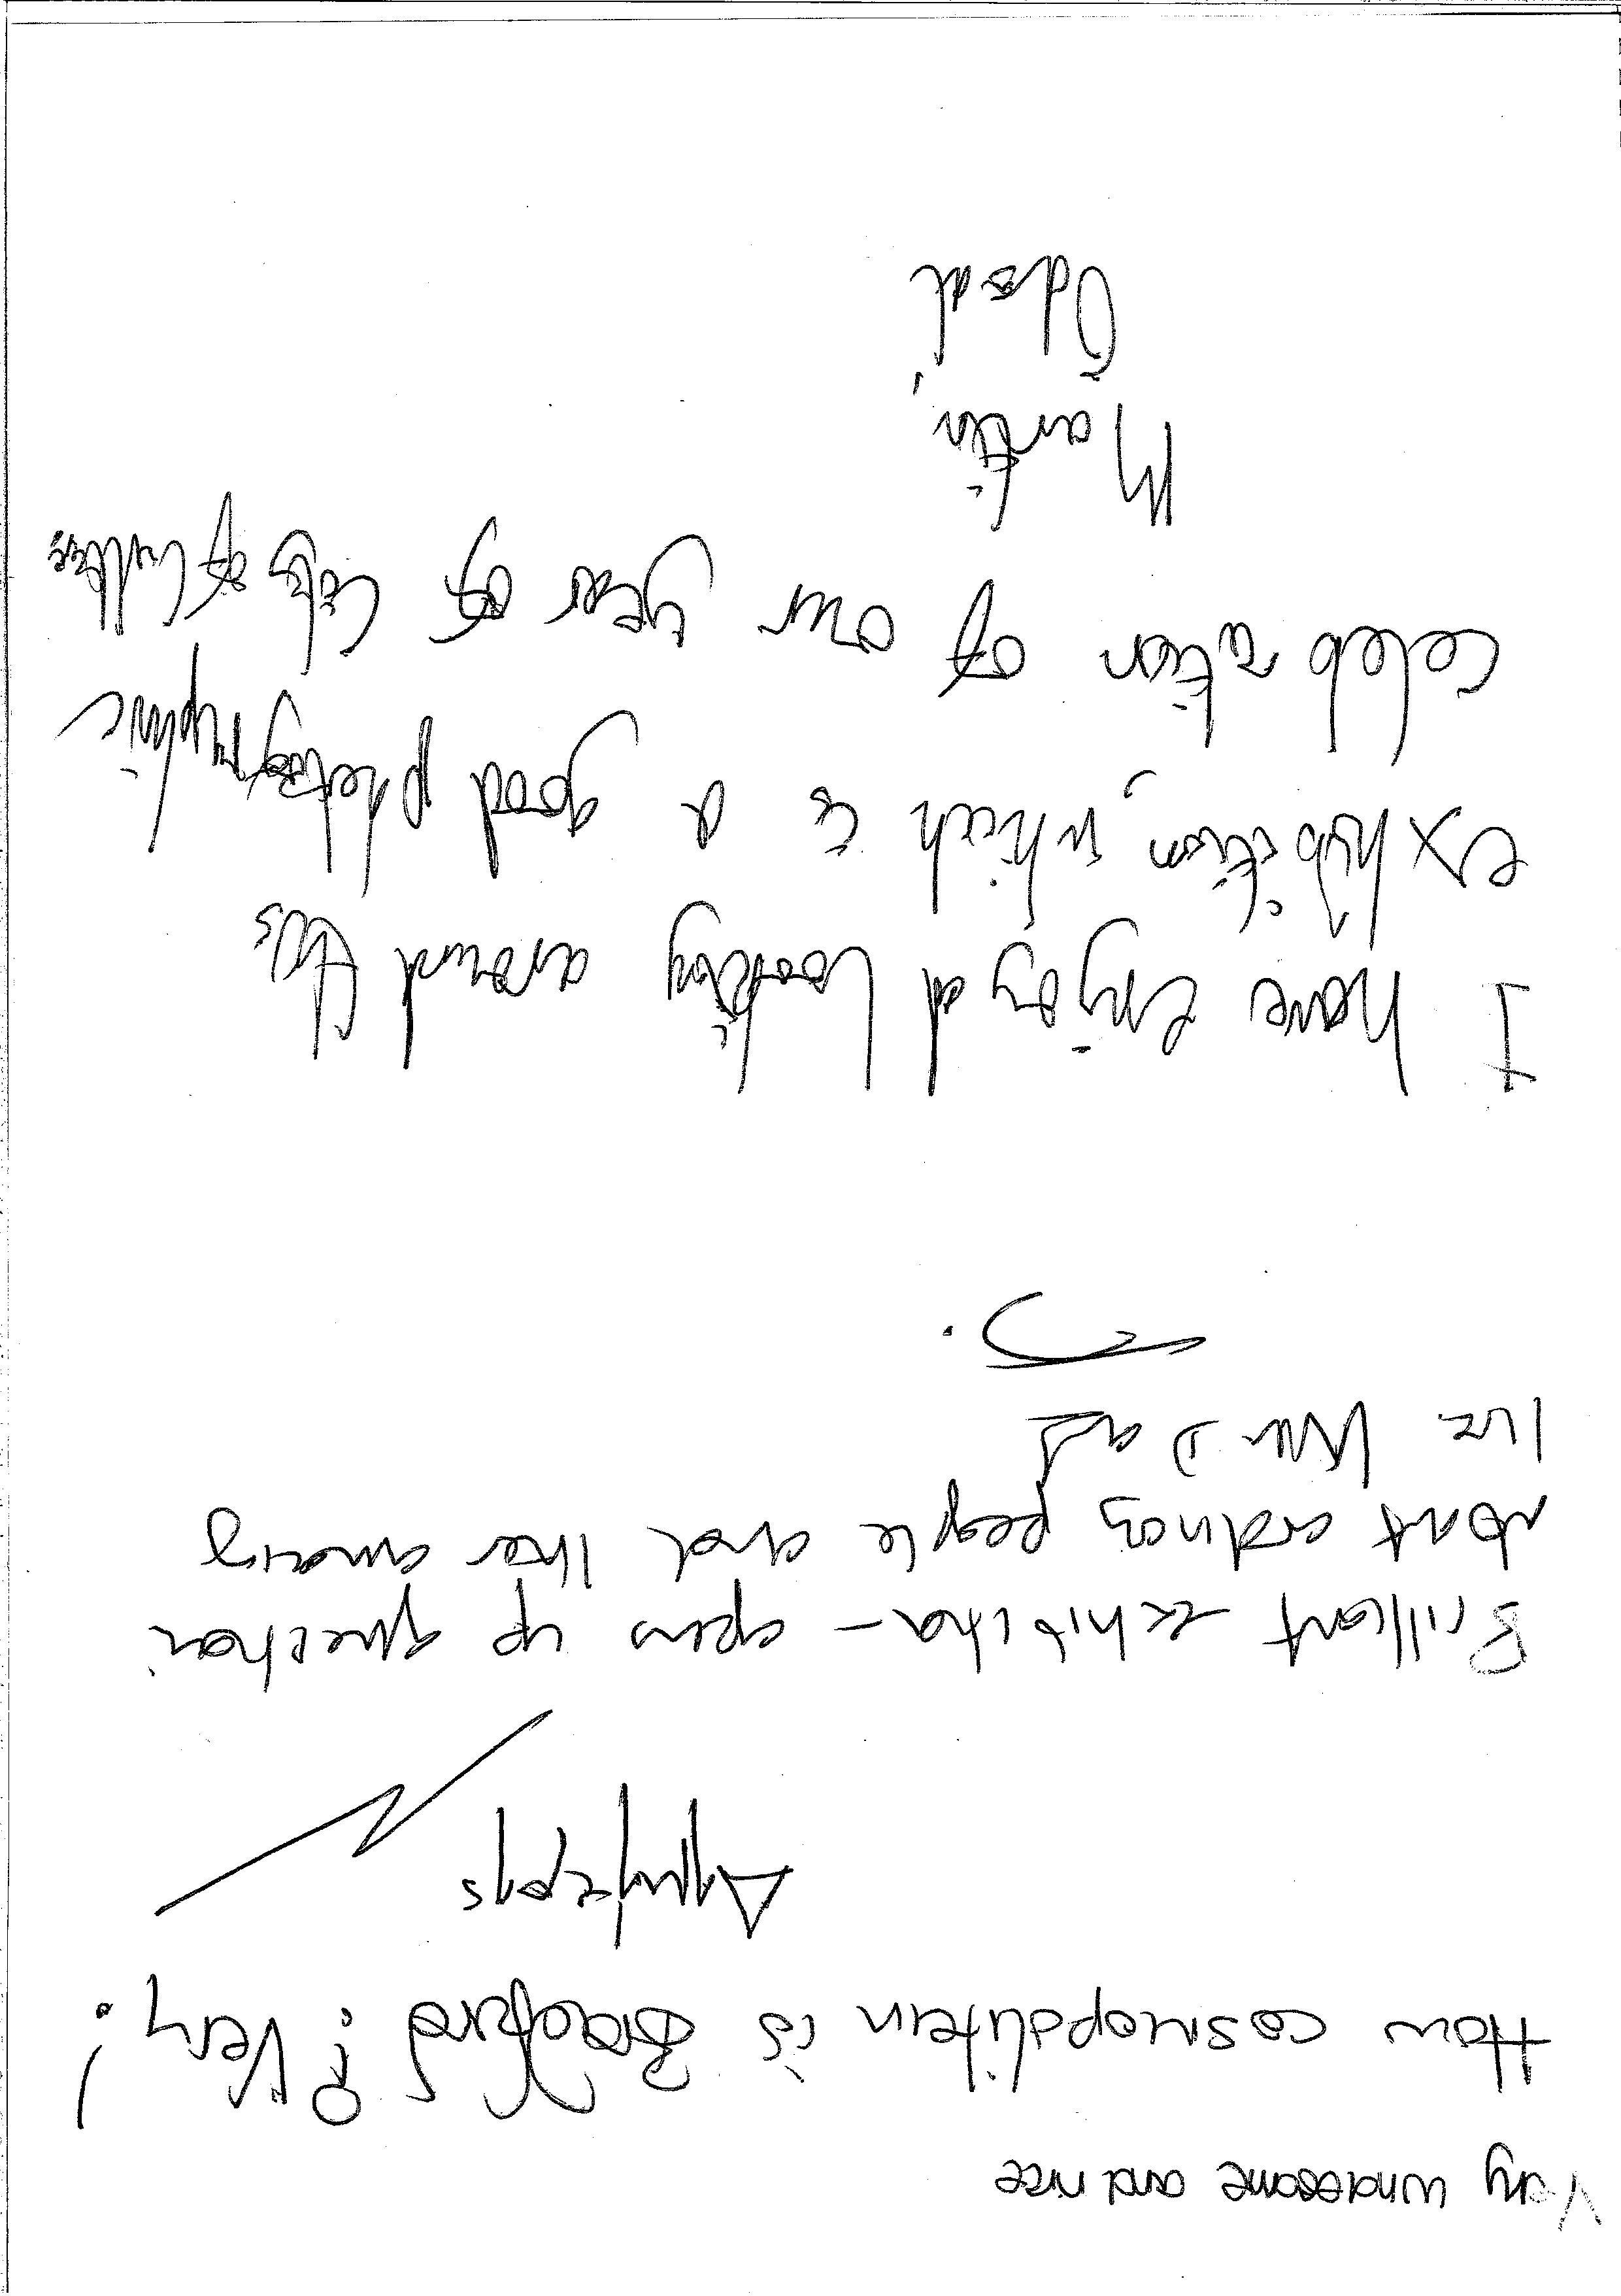 Very wholesome and nice
How cosmopolitein is Bradford? Very!
Brilliant exhibition - opens up question
about ordinary people and their amazing
I have enjoyed looking around this
exhibition, which is a good photographic
celebration of our year of city of culture
Martin,